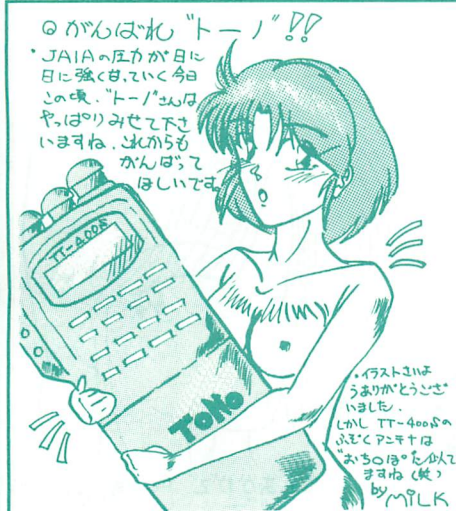 ◎がんばれ“トーノ”!!
・JAIAの圧力が日に
日に強くなっていく今日
この頃.“トーノ”さんは
やっぱりみせて下さ
いますね.これからも
がんばって
ほしいです
TT-400S
TONO
・イラストさいよ
うありがとうござ
いました.
しかし TT-400Sの
ふぞくアンテナは
“おち○ぽ”た似て
ますね(笑)
by MiLK